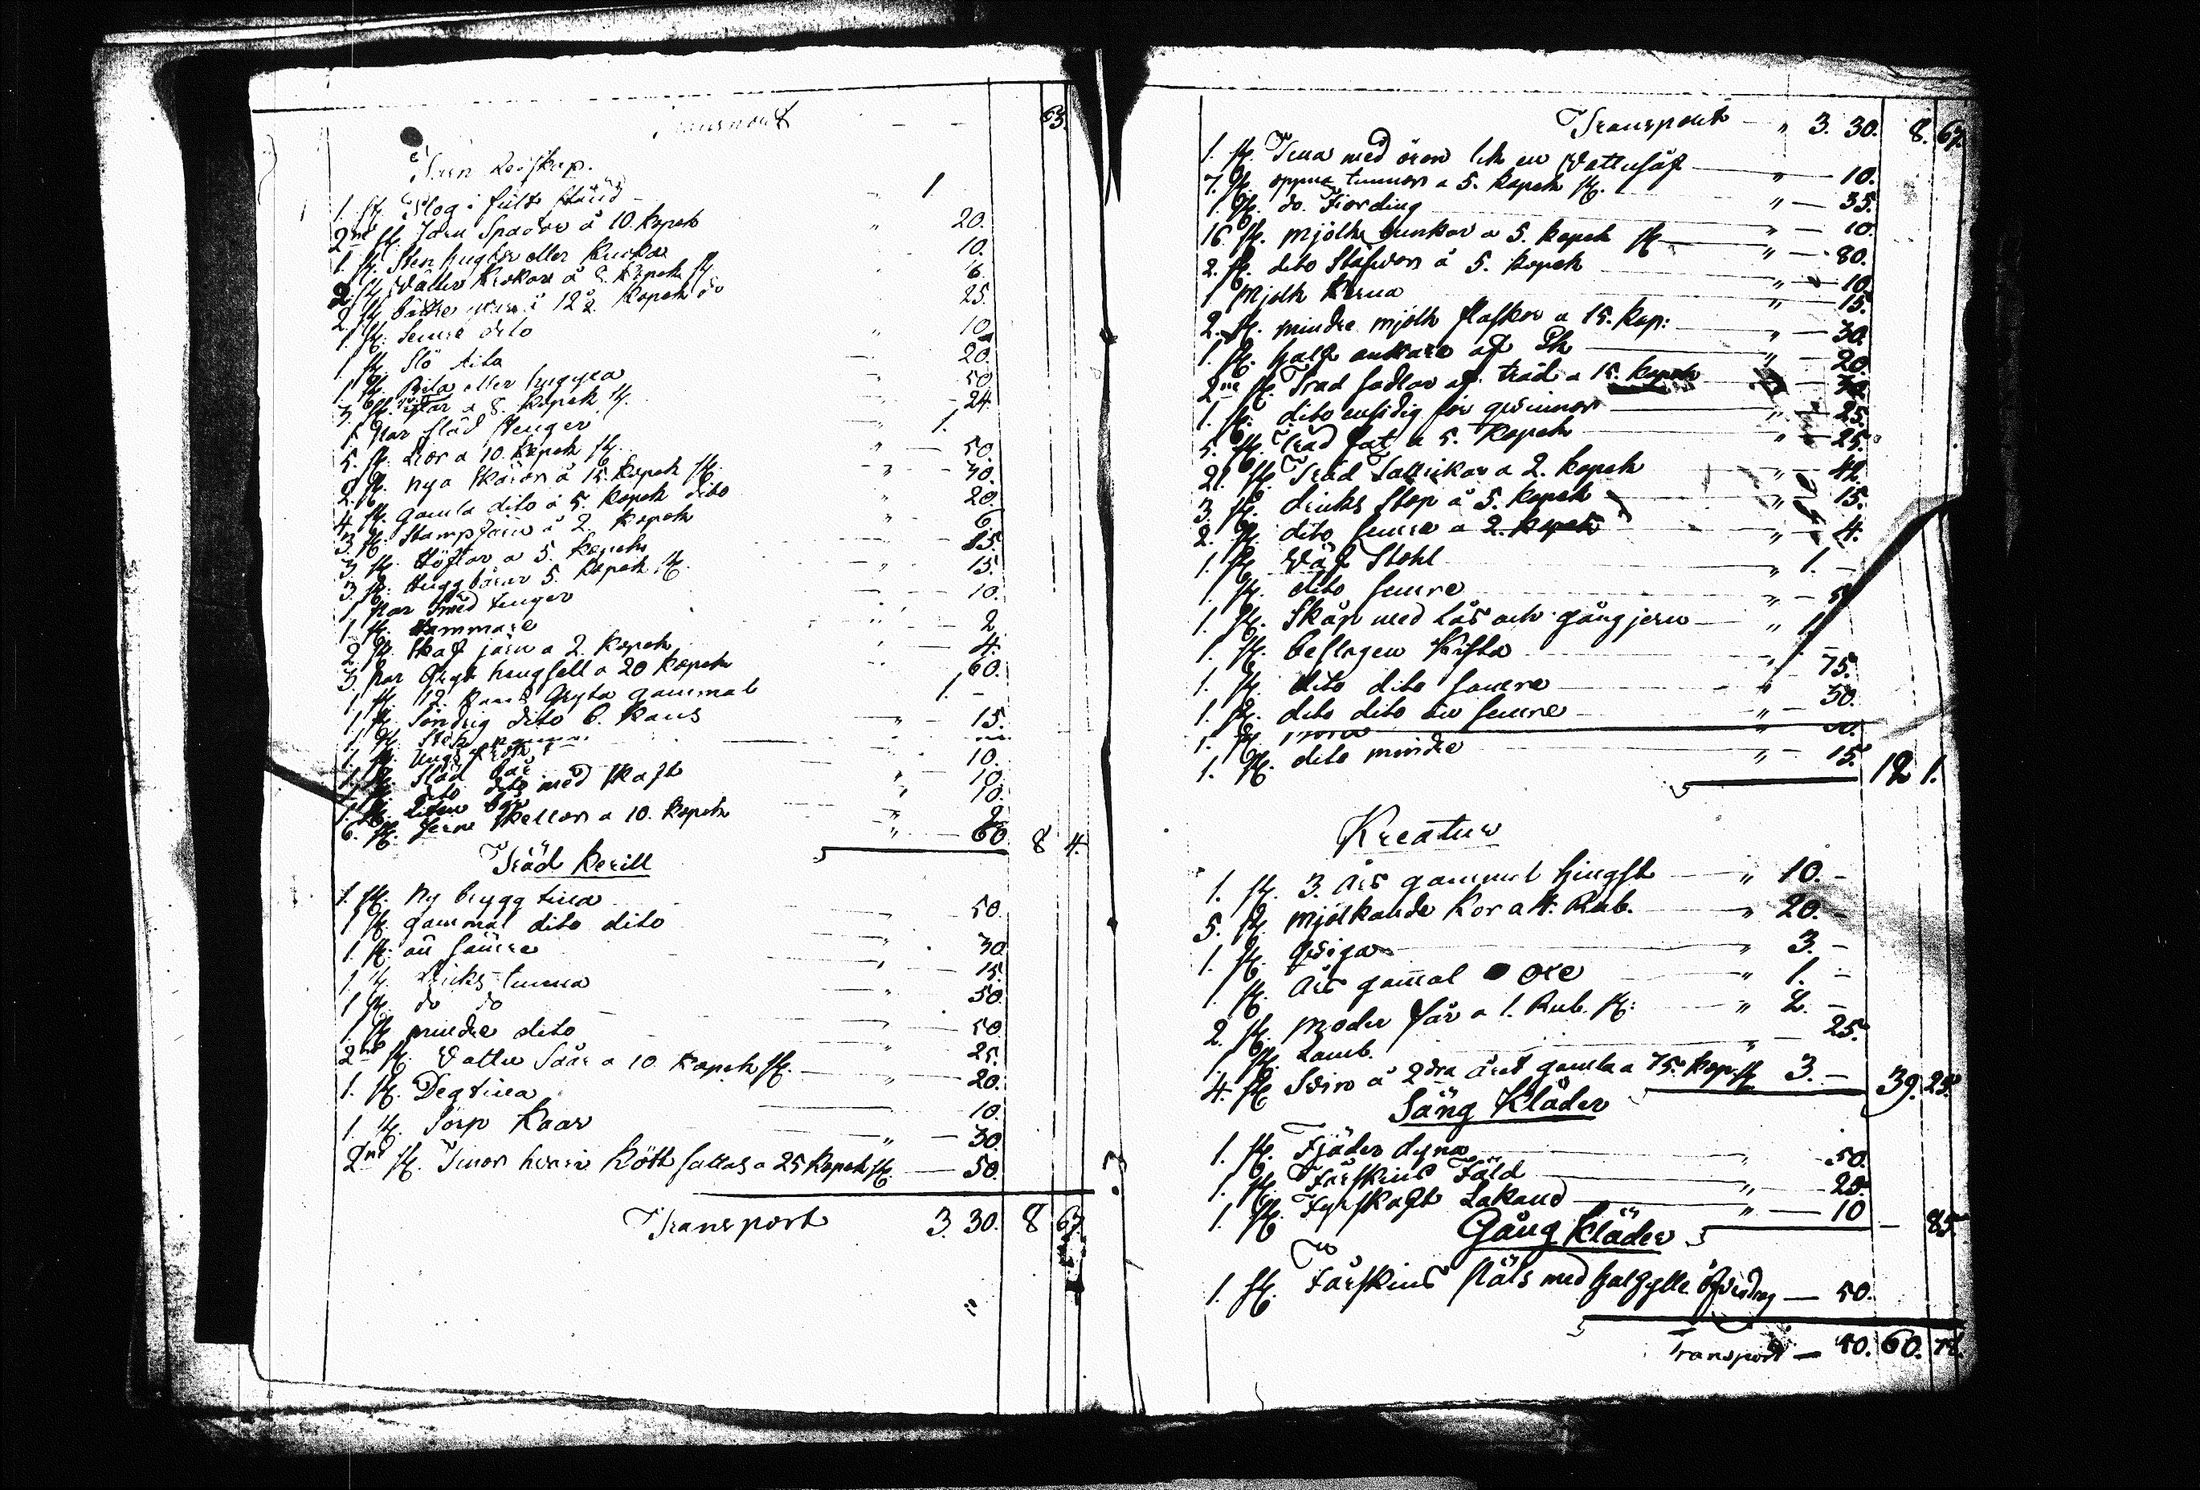 Transport - - 63.
Järn Redskap.
1. st. Plog i fült stånd - " 1
2ne st. Jern Spador à 10. Kopek " 20.
1. st. Sten hugg eller Kurka 10.
2. st. Vätter Krokar à 3. Kopek st. 6.
2. st. bättre à 12½ Kopek do 25.
1. st. semre dito " 10
1 st. Slö dito 20.
1. st. Bila eller 50
3. st. yxar a 8. Kopek st. - 24.
1. Par släd stenger " 1.
5. st. Liar a 10. Kopek st. " - 50.
2. st. nya skäror à 15. Kopek st. " - 30.
4. st. gamla dito à 5. Kopek dito " 20.
3. st. Stampjärn à 2. Kopek " 6
3 st. Höflar a 5. Kopek 15.
3. st. Huggjärn 5. Kopek st. 15.
1 Par Smed tenger 10.
1. st. Hammare 2
2. st. Skaf järn a 2. Kopek 4.
3 Par Gryt hengsell a 20 Kopek 60.
1 st. 12. Kans Gryta gammal 1. -
1 st. Söndrig dito 6. Kans " - 15.
1. st.
1. st. 10.
1 st. Släd 10.
1 st. dito dito med skaft " 10.
1. st. Liten " 2
6. st. Jerne Skällor a 10. Kopek " - 60 8 4.
Träd Kerill
1. st. Ny brygg tina 50.
1 st. gammal dito dito " - 30
1 st. än sämre " - 15.
1. st. Dricks-tunna " - 50.
1 st. do do
1. st. mindre dito " - 50.
2ne st. Vattu Såår a 10. Kopek st. " - 25.
1. st. Degtina " - 20.
1. st. Sörp Kaar 10.
" - 30
2ne st. Tinor hvari Kött saltas a 25 Kopek st. - 50.
Transport 3. 30. 8 67.
Transport " 3. 30. 8. 67.
1. st. Tina med öron lik en Vattusåf " - 10.
7. st. öppna tunnor a 5. Kopek st. " - 35.
1. st. do. Fjerding " - 10.
16 st. mjölk bunkar a 5. Kopek st. " - 80.
2. st. dito Stäfvor à 5. Kopek " - 10.
1 Mjölk Kärna " - 15.
2. st. mindre mjölk flaskor a 15. Kop: " - 30.
1 st. half ankare af Ek " - 20.
2ne st. Träd sadlar af träd a 15. Kopek " - 30.
1. st. dito ensidig för qvinnor " - 25.
5. st. Träd fat a 5. Kopek " - 25.
21. st. Träd Tallrikar a 2. Kopek " - 42.
3. st. dricks Stop à 5. Kopek " - 15.
2. st. dito semre a 2. Kopek " - 4.
1. st. Väf Stohl " 1. -
1. st. dito semre " - 5
1. st. Skåp med lås och gångjern " 1.
1. st. beslagen Kista " - 75.
1. st. dito dito semre " - 50.
1. st. dito dito än semre "
1. st.
1. st. dito mindre " - 15. 12 1.
Kreatur
1. st. 3. års gammal hingst " 10. -
5. st. mjölkande Kor a 4. Rub. " 20. -
1 st. Qviga " 3. -
1. st. års gammal oxe " 1. -
2. st. moder får a 1. Rub. st. " 2. -
1 st. Lamb. " 25.
4. st. Svin à 2dra året gamla a 75. Kop. st 3. - 39. 25.
Säng Kläder
1. st. Fjäder dyna " - 50.
1. st. Fårskins Fäld " - 25.
1. st. Fyrskaft Lakand " - 10 - 85.
Gång Kläder
1. st. Fårskins päls med halfylle öfverdrag - 50.
Transport - 50. 60. 78.